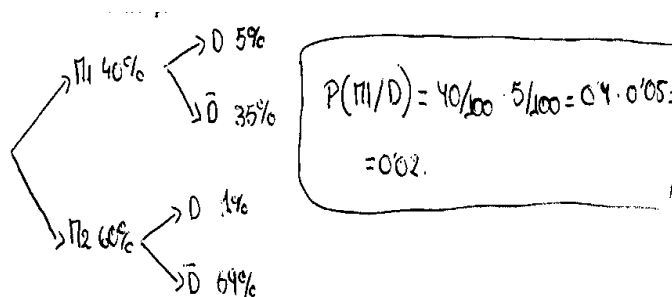 M1 40% D 5%
D̄ 35%
M2 60% D 1%
D̄ 64%
P(M1/D) = 40/100 · 5/100 = 0'4 · 0'05 =
= 0'02.